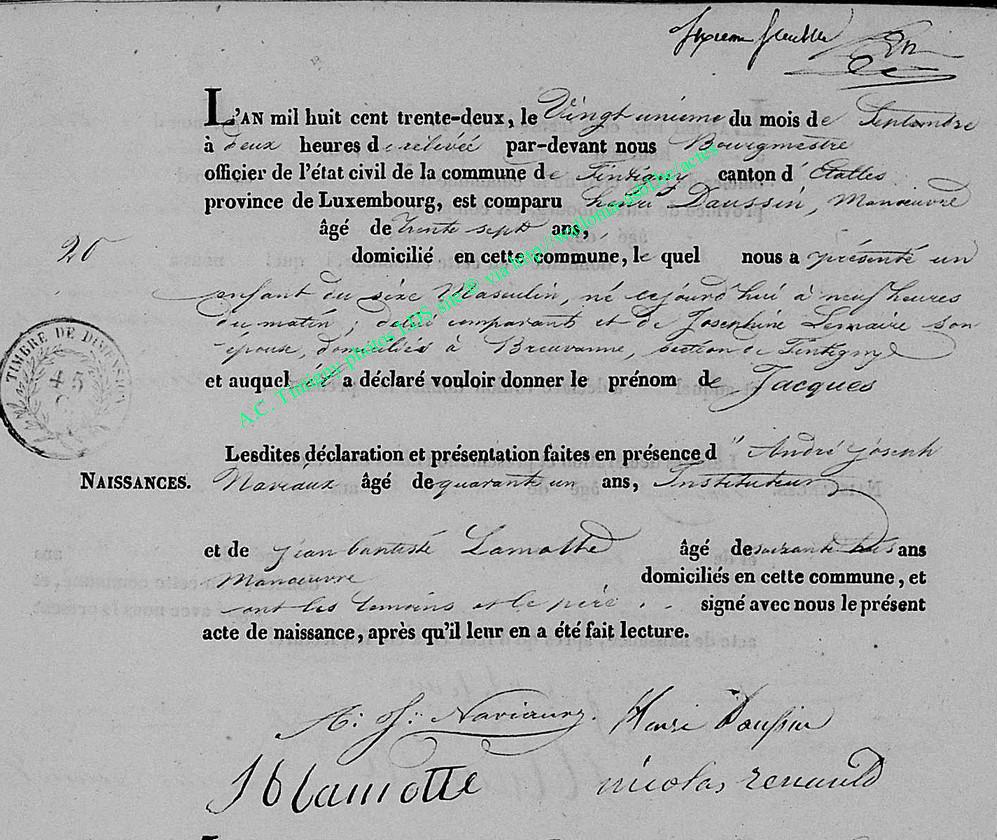 sixieme feuillet
L'AN mil huit cent trente-deux, le Vingt unième du mois de Septembre
à deux heures de relevée par-devant nous Bourgmestre
officier de l'état civil de la commune de Tintigny canton d'Etalles
province de Luxembourg, est comparu henri Daussin, Manœuvre
âgé de trente sept ans,
20
domicilié en cette commune, le quel nous a présenté un
enfant du sèxe Masculin, né cejourd'hui à neuf heures
du matin, de lui comparant et de Josephine Lemaire son
épouse, domiciliés à Breuvanne, section de Tintigny
et auquel il a déclaré vouloir donner le prénom de Jacques
TIMBRE DE DIMENSION
45
C
Lesdites déclaration et présentation faites en présence d'' André Joseph
NAISSANCES. Naviaux âgé de quarante un ans, Instituteur
et de Jean baptiste Lamotte âgé de soixante trois ans
Manœuvre domiciliés en cette commune, et
ont les temoins et le père signé avec nous le présent
acte de naissance, après qu'il leur en a été fait lecture.
A: J:: Naviaux. Henri Daussin
J b lamotte nicolas renauld
A.C. Tintigny photos LDS site © via http://wallonia-asbl.be/actes